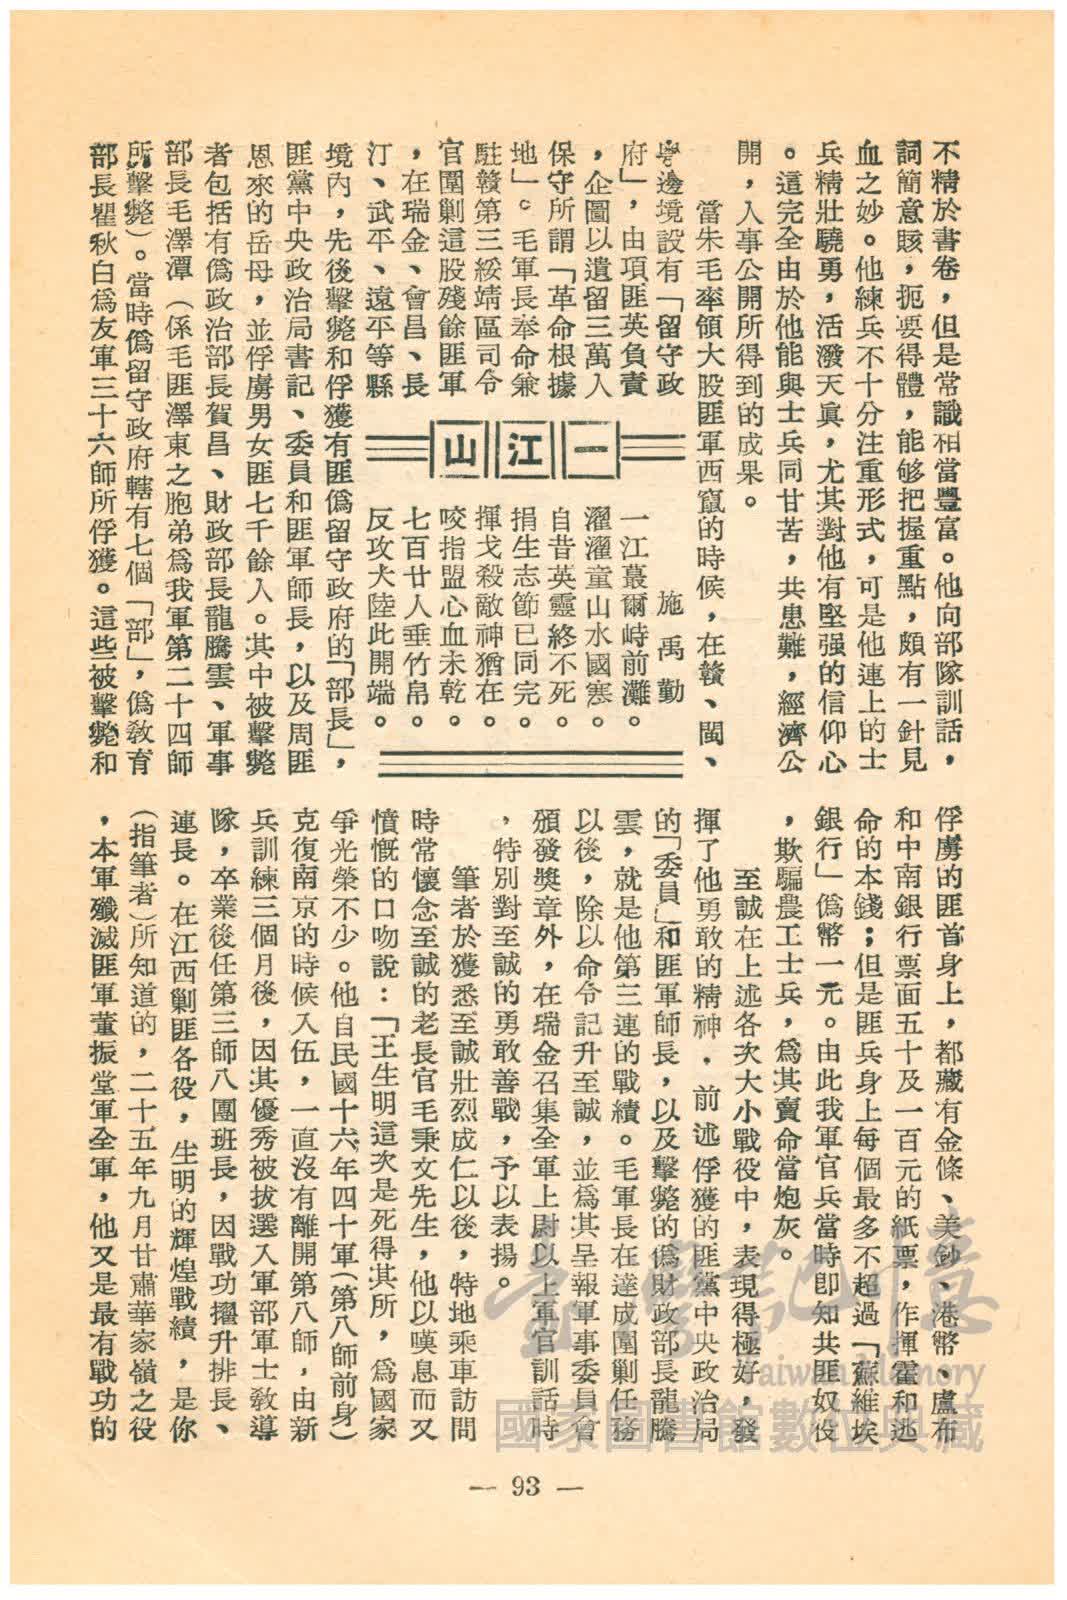 不精於書卷，但是常識相當豐富。他向部隊訓話，
詞簡意賅，扼要得體，能够把握重點，頗有一針見
血之妙。他練兵不十分注重形式，可是他連上的士
兵精壯驍勇，活潑天眞，尤其對他有堅强的信仰心
。這完全由於他能與士兵同甘苦，共患難，經濟公
開，人事公開所得到的成果。
當朱毛率領大股匪軍西竄的時候，在贛、閩、
粤邊境設有「留守政
府」，由項匪英負責
，企圖以遺留三萬人
保守所謂「革命根據
地」。毛軍長奉命兼
駐贛第三綏靖區司令
官圍剿這股殘餘匪軍
，在瑞金、會昌、長
汀、武平、遠平等縣
境內，先後擊斃和俘獲有匪僞留守政府的「部長」，
匪黨中央政治局書記、委員和匪軍師長，以及周匪
恩來的岳母，並俘虜男女匪七千餘人。其中被擊斃
者包括有僞政治部長賀昌、財政部長龍騰雲、軍事
部長毛澤潭（係毛匪澤東之胞弟爲我軍第二十四師
所擊斃）。當時僞留守政府轄有七個「部」，僞敎育
部長瞿秋白爲友軍三十六師所俘獲。這些被擊斃和
一江山
施禹勤
一江蕞爾峙前灘。
濯濯童山水國寒。
自昔英靈終不死。
捐生志節已同完。
揮戈殺敵神猶在。
咬指盟心血未乾。
七百廿人垂竹帛。
反攻大陸此開端。
俘虜的匪首身上，都藏有金條、美鈔、港幣、盧布
和中南銀行票面五十及一百元的紙票，作揮霍和逃
命的本錢；但是匪兵身上每個最多不超過「蘇維埃
銀行」僞幣一元。由此我軍官兵當時卽知共匪奴役
，欺騙農工士兵，爲其賣命當炮灰。
至誠在上述各次大小戰役中，表現得極好，發
揮了他勇敢的精神．前述俘獲的匪黨中央政治局
的「委員」和匪軍師長，以及擊斃的僞財政部長龍騰
雲，就是他第三連的戰績。毛軍長在達成圍剿任務
以後，除以命令記升至誠，並爲其呈報軍事委員會
頒發獎章外，在瑞金召集全軍上尉以上軍官訓話時
，特別對至誠的勇敢善戰，予以表揚。
筆者於獲悉至誠壯烈成仁以後，特地乘車訪問
時常懷念至誠的老長官毛秉文先生，他以嘆息而又
憤慨的口吻說：「王生明這次是死得其所，爲國家
爭光榮不少。他自民國十六年四十軍（第八師前身）
克復南京的時候入伍，一直沒有離開第八師，由新
兵訓練三個月後，因其優秀被拔選入軍部軍士敎導
隊，卒業後任第三師八團班長，因戰功擢升排長、
連長。在江西剿匪各役，生明的輝煌戰績，是你
（指筆者）所知道的，二十五年九月甘肅華家嶺之役
，本軍殲滅匪軍董振堂軍全軍，他又是最有戰功的
— 93 —
臺灣記憶
Taiwan Memory
國家圖書館數位典藏